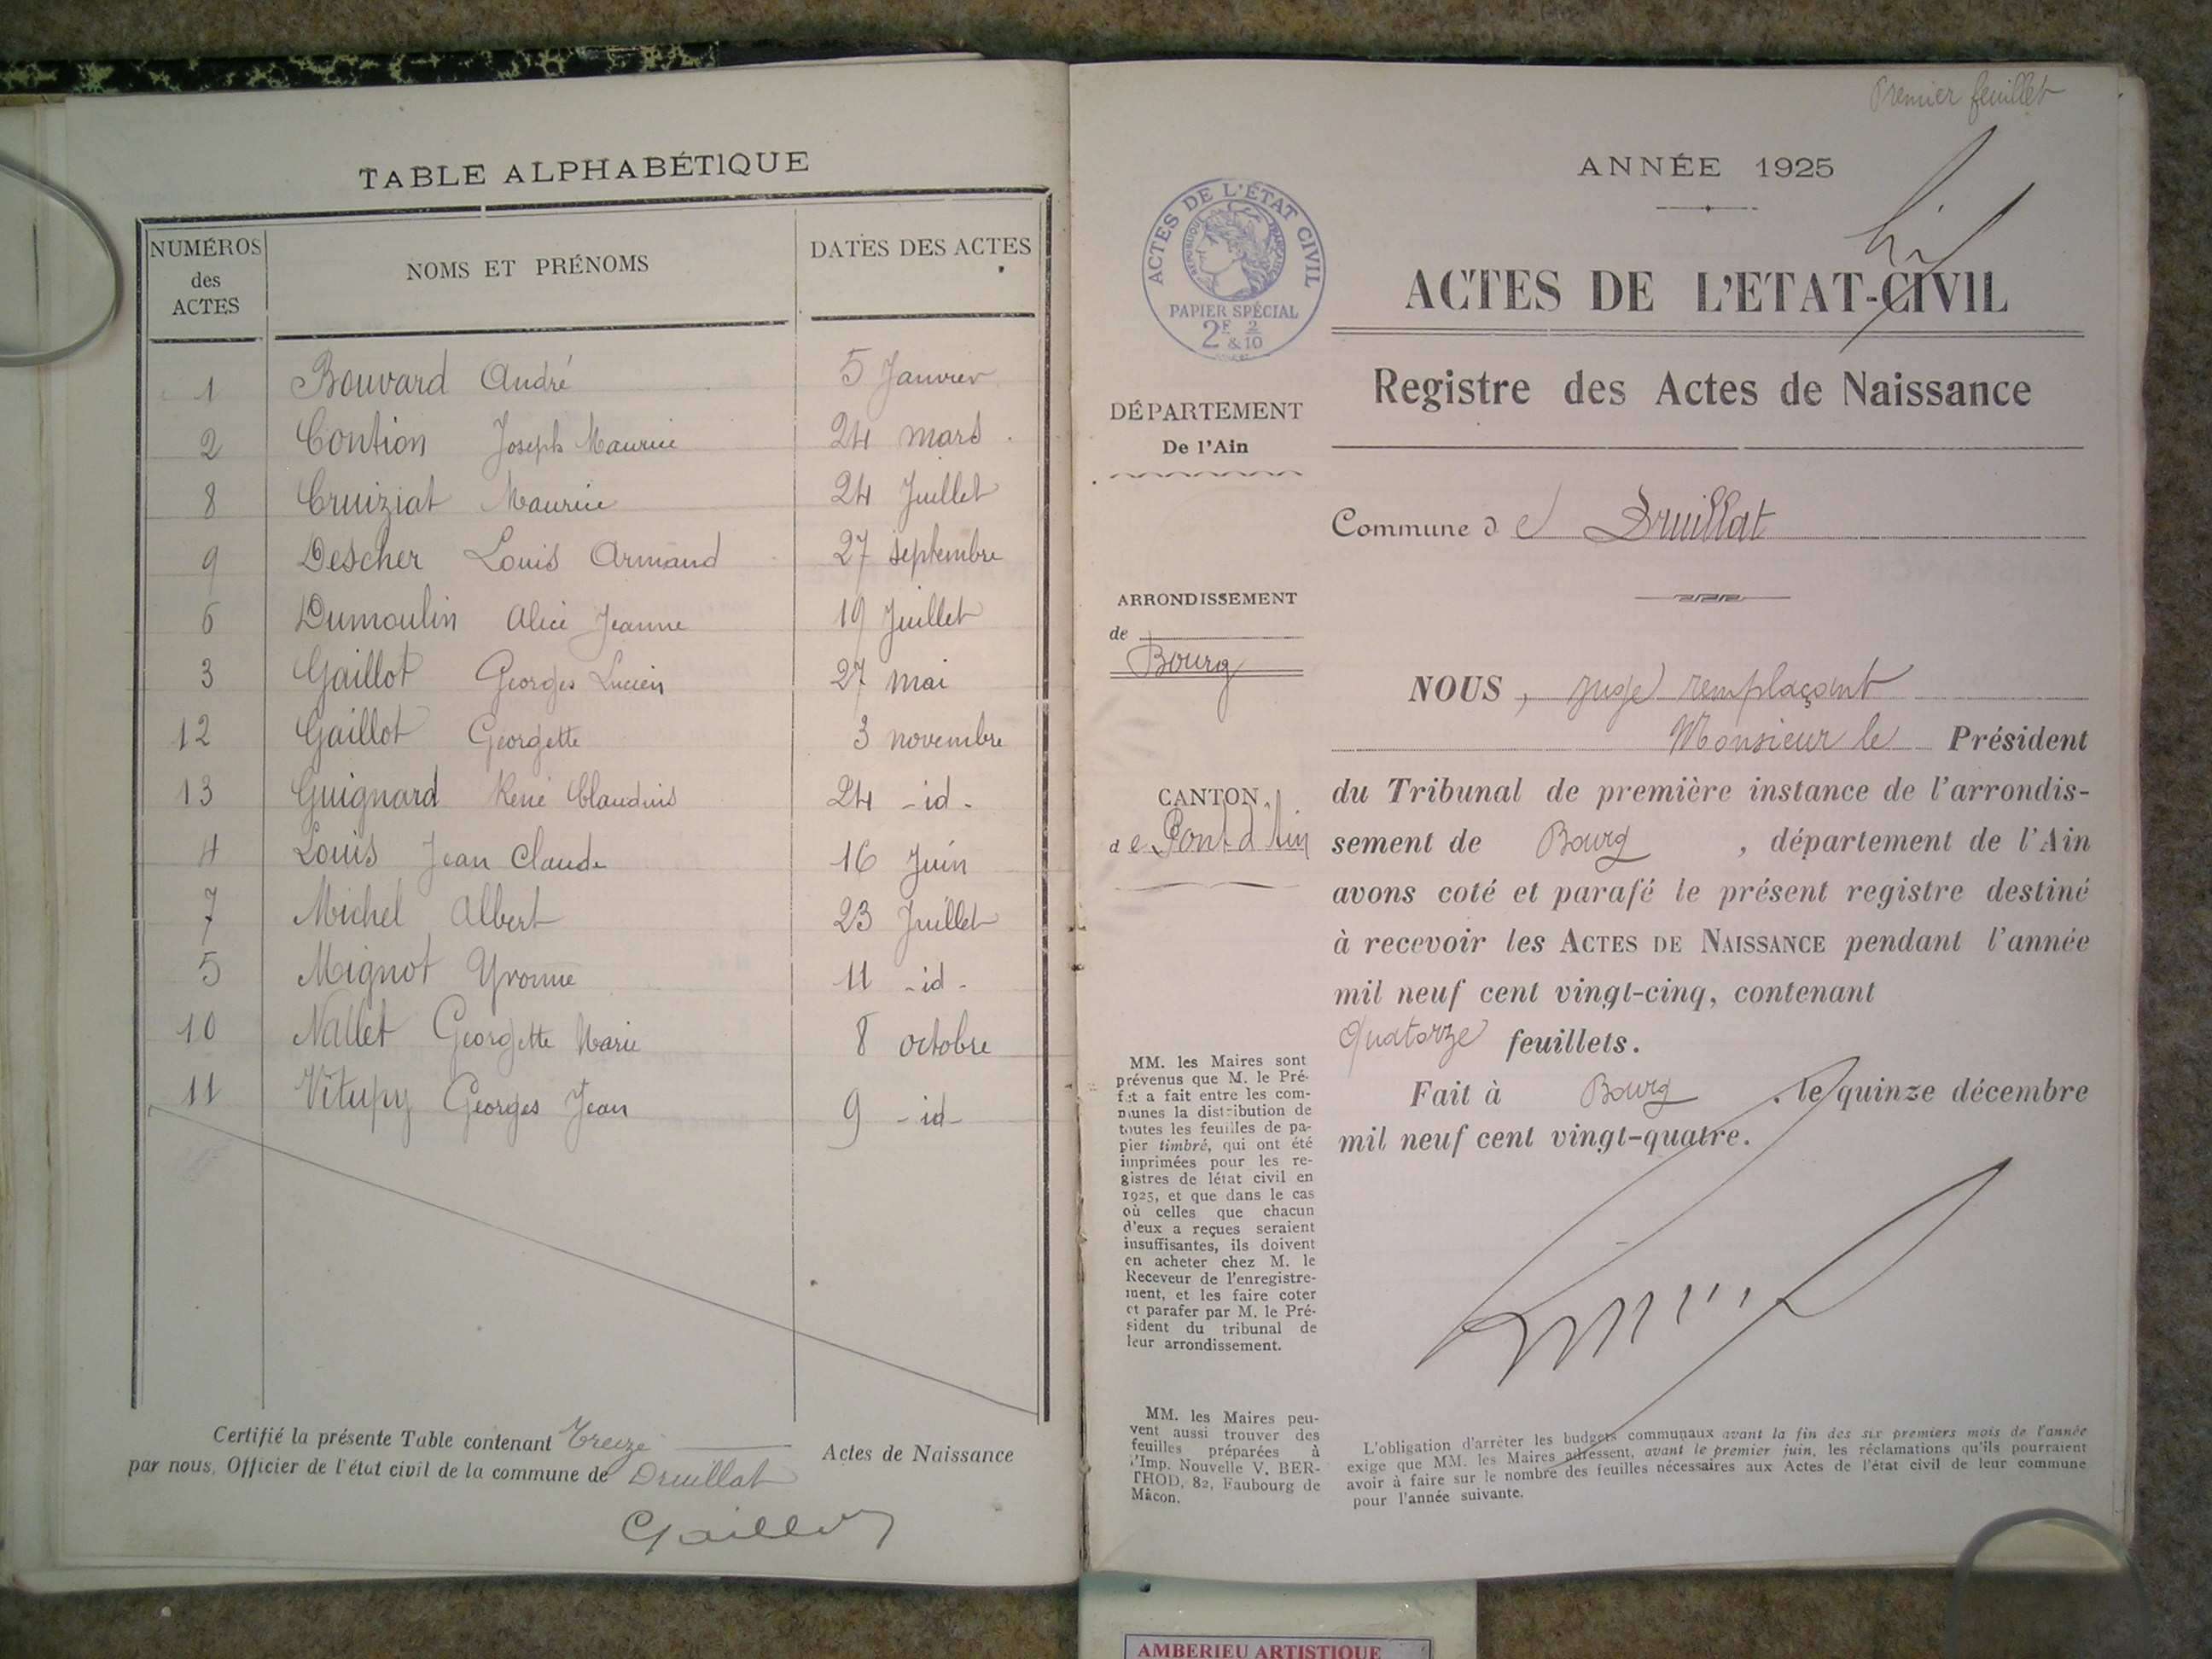 TABLE ALPHABÉTIQUE
NUMÉROS
des
ACTES
NOMS ET PRÉNOMS
DATES DES ACTES
1 Bouvard André 5 Janvier
2 Contion Joseph Maurice 24 mars
8 Cruiziat Maurice 24 Juillet
9 Descher Louis Armand 27 septembre
6 Dumoulin Alice Jeanne 19 Juillet
3 Gaillot Georges Lucien 27 mai
12 Gaillot Georgette 3 novembre
13 Guignard René Claudius 24 - id -
4 Louis Jean Claude 16 Juin
7 Michel Albert 23 Juillet
5 Mignot Yvonne 11 - id -
10 Nallet Georgette Marie 8 octobre
11 Vitupy Georges Jean 9 - id -
Certifié la présente Table contenant Treize Actes de Naissance
par nous, Officier de l'état civil de la commune de Druillat
Gaillot
Premier feuillet
ANNÉE 1925
ACTES DE L'ÉTAT CIVIL
RÉPUBLIQUE FRANÇAISE
PAPIER SPÉCIAL
2F & 2/10
ACTES DE L'ETAT-CIVIL
Registre des Actes de Naissance
DÉPARTEMENT
De l'Ain
Commune de Druillat
ARRONDISSEMENT
de
Bourg
CANTON
de Pont d'Ain
NOUS, juge remplaçant
Monsieur le Président
du Tribunal de première instance de l'arrondis-
sement de Bourg, département de l'Ain
avons coté et parafé le présent registre destiné
à recevoir les ACTES DE NAISSANCE pendant l'année
mil neuf cent vingt-cinq, contenant
quatorze feuillets.
Fait à Bourg, le quinze décembre
mil neuf cent vingt-quatre.
MM. les Maires sont
prévenus que M. le Pré-
fet a fait entre les com-
munes la distribution de
toutes les feuilles de pa-
pier timbré, qui ont été
imprimées pour les re-
gistres de létat civil en
1925, et que dans le cas
où celles que chacun
d'eux a reçues seraient
insuffisantes, ils doivent
en acheter chez M. le
Receveur de l'enregistre-
ment, et les faire coter
et parafer par M. le Pré-
sident du tribunal de
leur arrondissement.
MM. les Maires peu-
vent aussi trouver des
feuilles préparées à
l'Imp. Nouvelle V. BER-
THOD, 82, Faubourg de
Mâcon.
L'obligation d'arrêter les budgets communaux avant la fin des six premiers mois de l'année
exige que MM. les Maires adressent, avant le premier juin, les réclamations qu'ils pourraient
avoir à faire sur le nombre des feuilles nécessaires aux Actes de l'état civil de leur commune
pour l'année suivante.
AMBERIEU ARTISTIQUE